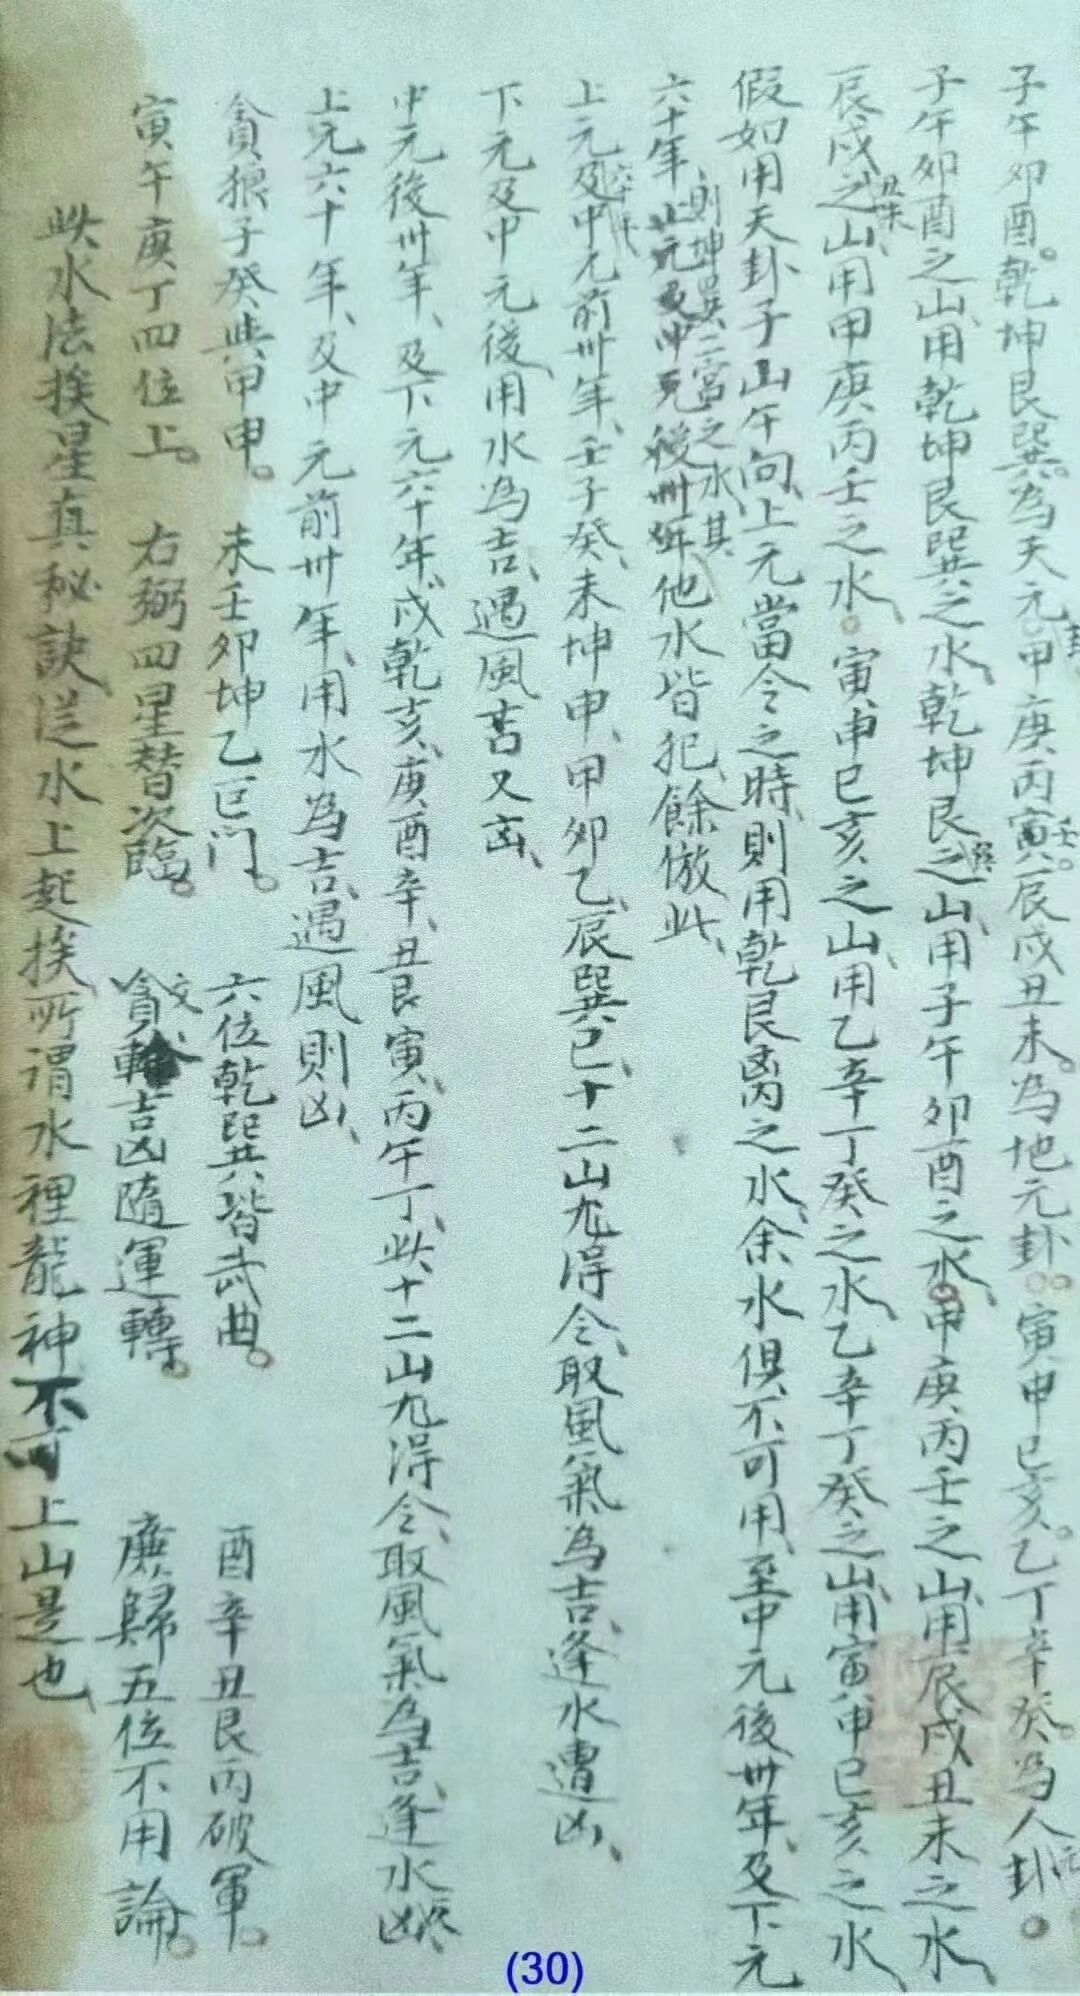 子午卯酉。乾坤艮巽。為天元卦甲庚丙壬。辰戌丑未。為地元卦。寅申巳亥。乙丁辛癸。為人元卦。
子午卯酉之山、用乾坤艮巽之水、乾坤艮巽之山、用子午卯酉之水、甲庚丙壬之山、用辰戌丑未之水、
辰戌丑未之山、用甲庚丙壬之水。寅申巳亥之山、用乙辛丁癸之水、乙辛丁癸之山、用寅申巳亥之水、
假如用天卦子山午向、上元當令之時、則用乾艮离之水、余水俱不可用、至中元後卅年、及下元
六十年、則坤巽二宮之水、其他水皆犯、餘倣此、
上元六十年及中元前卅年、壬子癸、未坤申、甲卯乙、辰巽巳、十二山、凡得令、取風氣為吉、逢水遭凶、
下元及中元後用水為吉、遇風吉又凶、
中元後卅年、及下元六十年、戌乾亥、庚酉辛、丑艮寅、丙午丁、此十二山、凡得令、取風氣為吉、逢水凶
上元六十年、及中元前卅年、用水為吉、遇風則凶、
貪狼子癸與甲申。 未壬卯坤乙巨门。 六位乾巽皆武曲。 酉辛丑艮丙破軍。
寅午庚丁四位上。 右弼四星替次臨。 吉凶隨運轉。 廉歸五位不用論。
此水法挨星真秘訣從水上起挨所謂水裡龍神不可上山是也
(30)